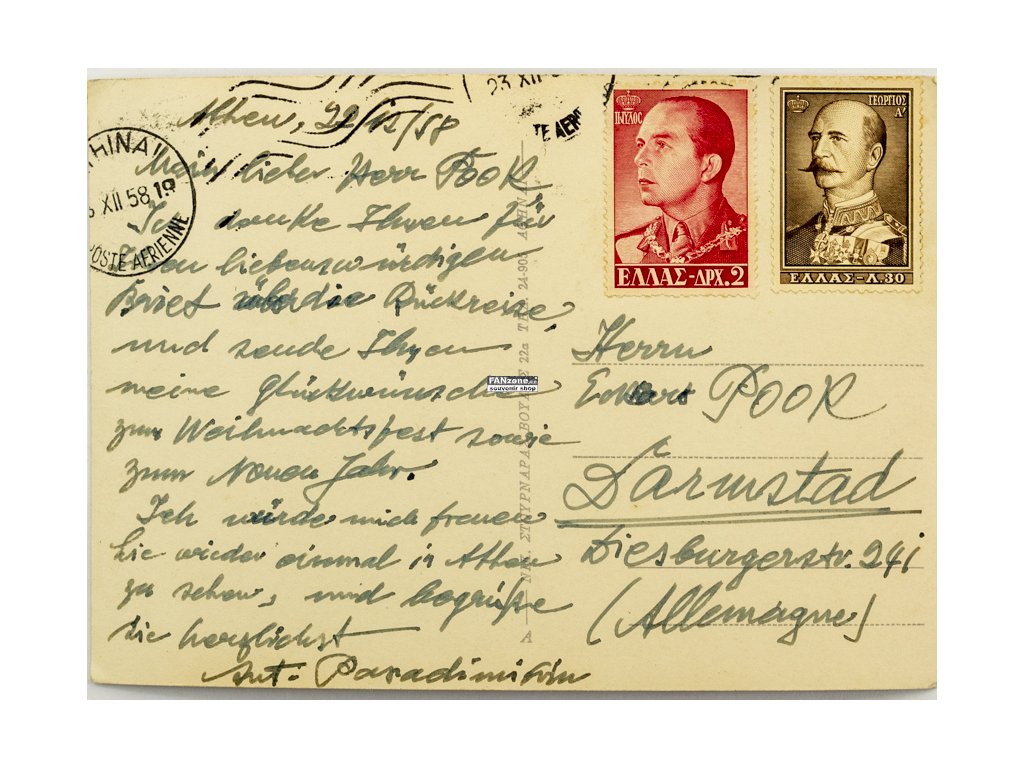 Athen, 22/12/58
Mein lieber Herr POOK
Ich danke Ihnen für
Ihren liebenswürdigen
Brief über die Rückreise,
und sende Ihnen
meine Glückwünsche
zum Weihnachtsfest sowie
zum Neuen Jahr.
Ich würde mich freuen
Sie wieder einmal in Athen
zu sehen, und begrüße
Sie herzlichst
Ant.
ΑΘΗΝΑΙ
XII 58 19
POSTE AERIENNE
23 XII
STE AERI
ΠΑΥΛΟΣ
ΕΛΛΑΣ-ΔΡΧ.2
ΓΕΩΡΓΙΟΣ
Α'
ΕΛΛΑΣ-Λ.30
Herrn
POOK
Darmstad
Diesburgerstr. 241
(Allemagne)
Α ΝΙΚ. ΣΤΟΥΡΝΑΡΑ ΒΟΥΛΗΣ 22α ΤΗΛ. 24-905 ΑΘΗΝ
FANzone
souvenir shop